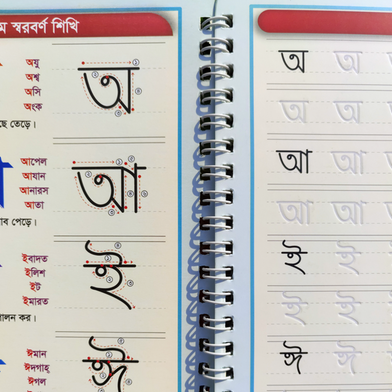 স্বরবর্ণ শিখি
অযু
অশ্ব
অসি
অংক
তেড়ে।
অ
আপেল
আযান
আনারস
আতা
পেড়ে।
আ
ইবাদত
ইলিশ
ইট
ইমারত
পালন কর।
ই
ঈমান
ঈদগাহ্
ঈগল
ঈ
অ অ অ
অ অ অ
আ আ আ
আ আ আ
ই ই ই
ই ই ই
ঈ ঈ ঈ